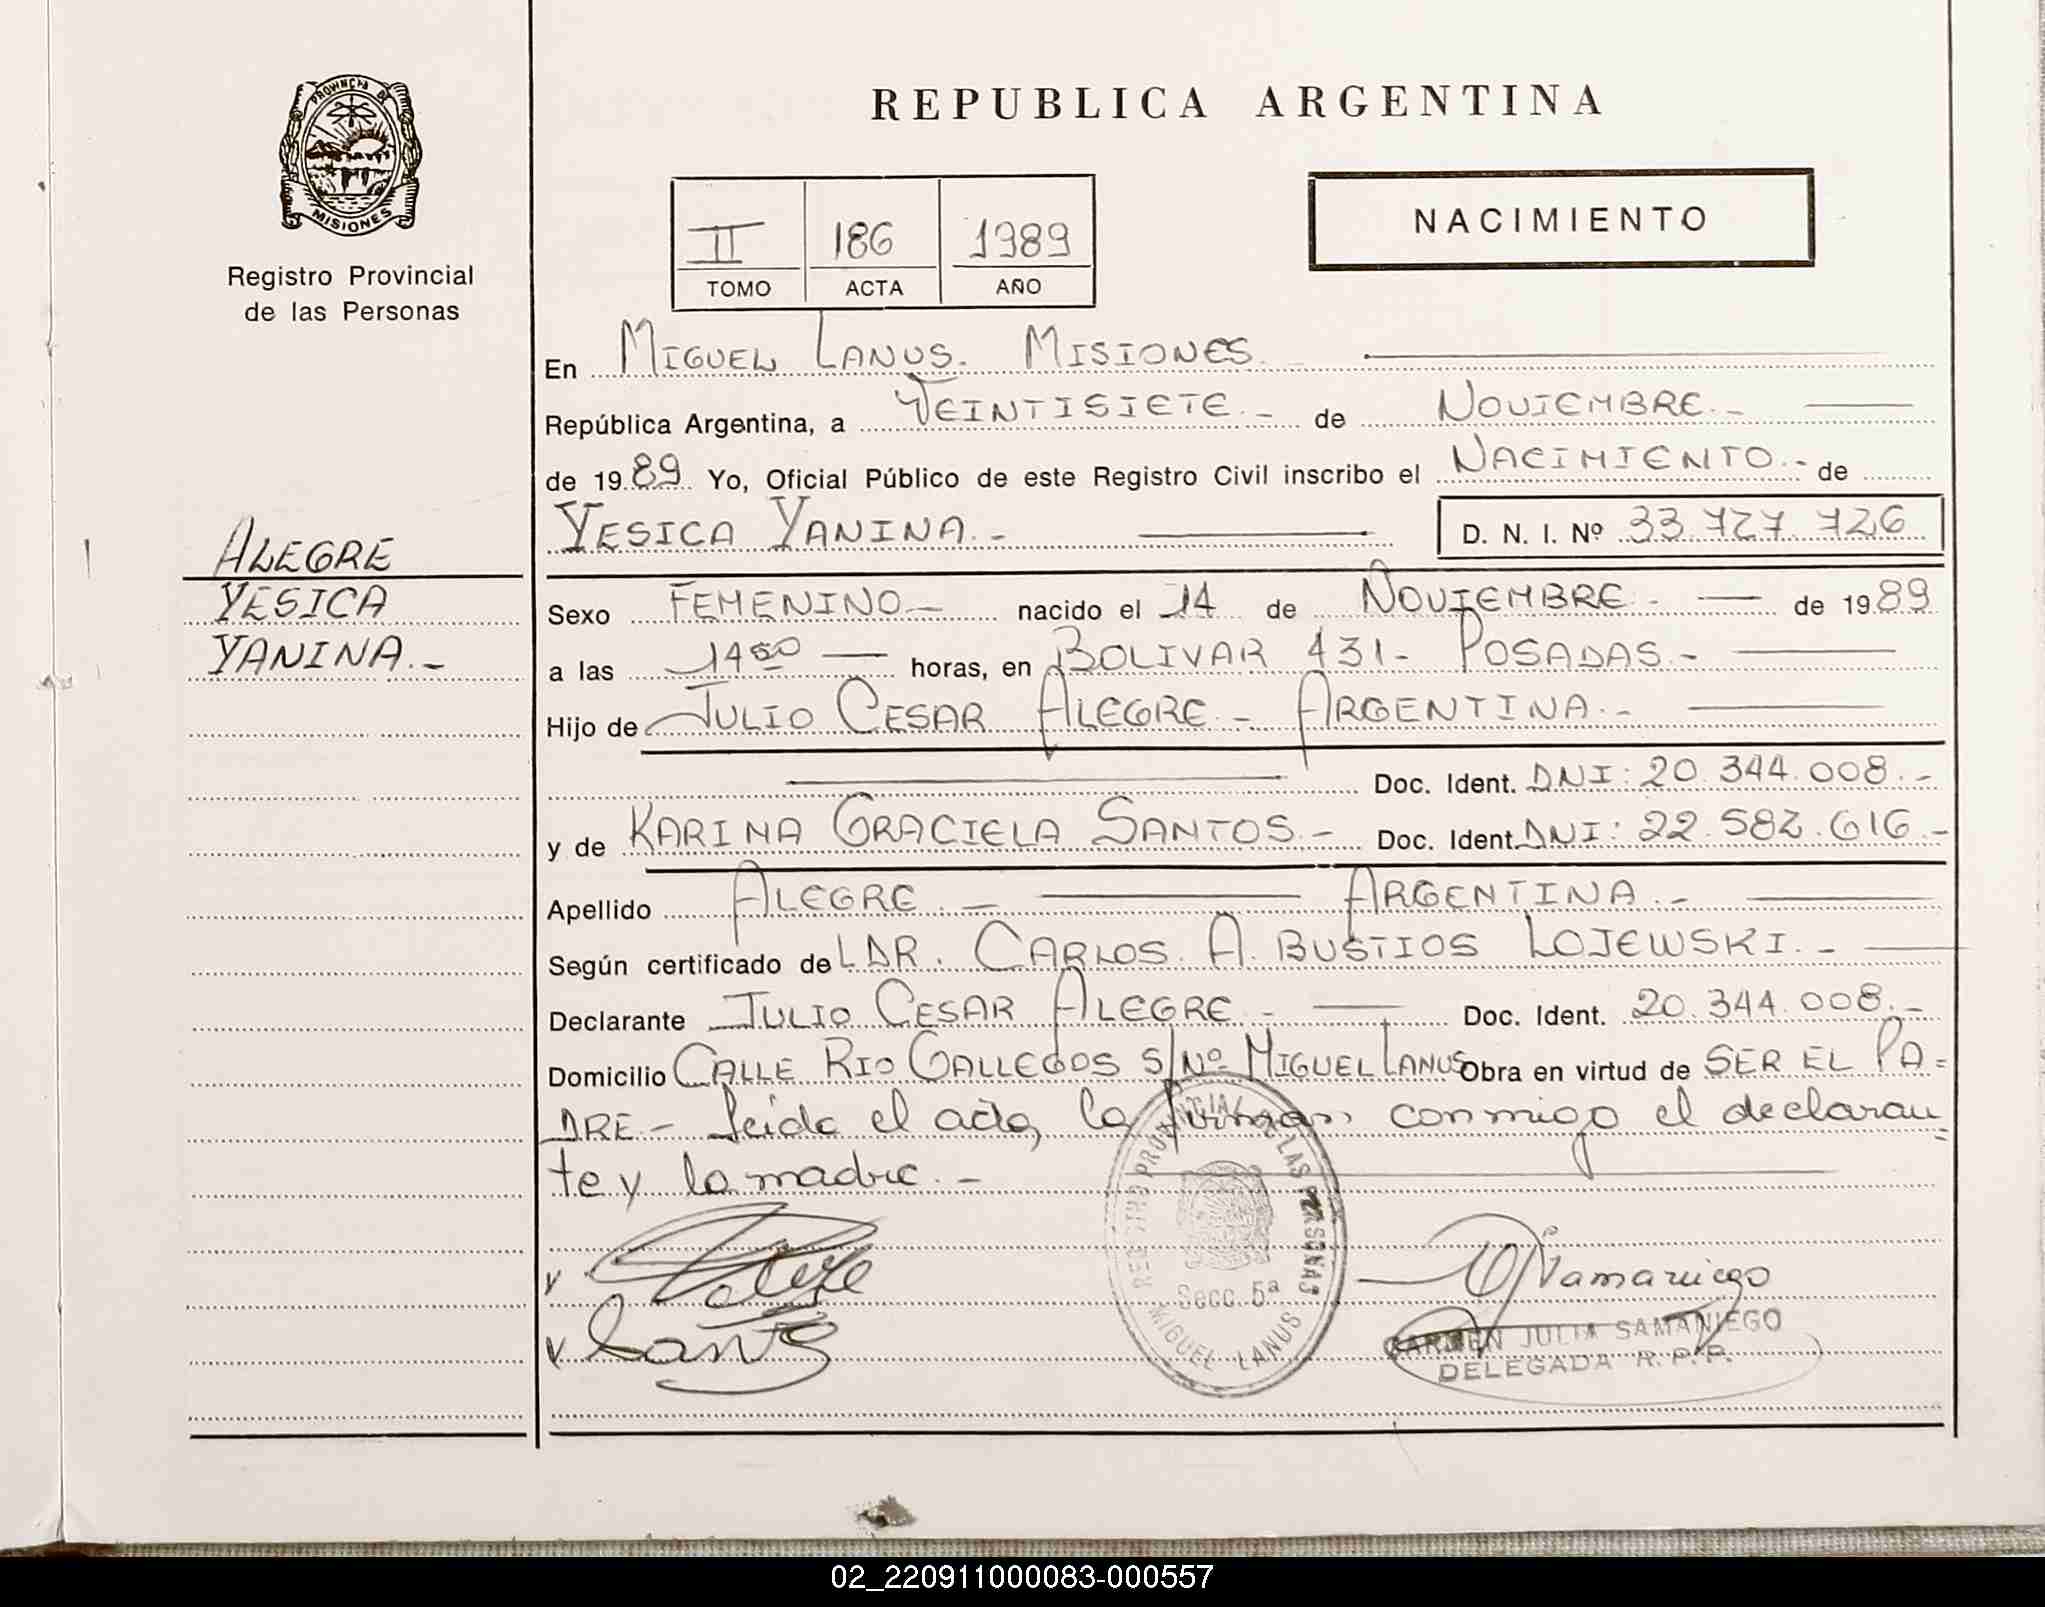 PROVINCIA DE
MISIONES
Registro Provincial
de las Personas
REPUBLICA ARGENTINA
NACIMIENTO
II 186 1989
TOMO ACTA AÑO
En MIGUEL LANUS. MISIONES.
República Argentina, a VEINTISIETE.- de NOVIEMBRE.-
de 1989 Yo, Oficial Público de este Registro Civil inscribo el NACIMIENTO.- de
YESICA YANINA.- D. N. I. Nº 33.727.726
ALEGRE
YESICA
YANINA.-
Sexo FEMENINO.- nacido el 14 de NOVIEMBRE.- de 1989
a las 14 00 horas, en BOLIVAR 431- POSADAS.-
Hijo de JULIO CESAR ALEGRE.- ARGENTINA.-
Doc. Ident. DNI: 20.344.008.-
y de KARINA GRACIELA SANTOS.- Doc. Ident. DNI: 22.582.616.-
Apellido ALEGRE.- ARGENTINA.-
Según certificado de L DR. CARLOS. A. BUSTIOS LOJEWSKI.-
Declarante JULIO CESAR ALEGRE.- Doc. Ident. 20.344.008.-
Domicilio CALLE RIO GALLEGOS S/Nº MIGUEL LANUS Obra en virtud de SER EL PA=
DRE.- Leida el acta, la firman conmigo el declaran=
te y la madre.-
REGISTRO PROVINCIAL DE LAS PERSONAS
Secc. 5ª
MIGUEL LANUS
Samaniego
CARMEN JULIA SAMANIEGO
DELEGADA R.P.P.
02_220911000083-000557